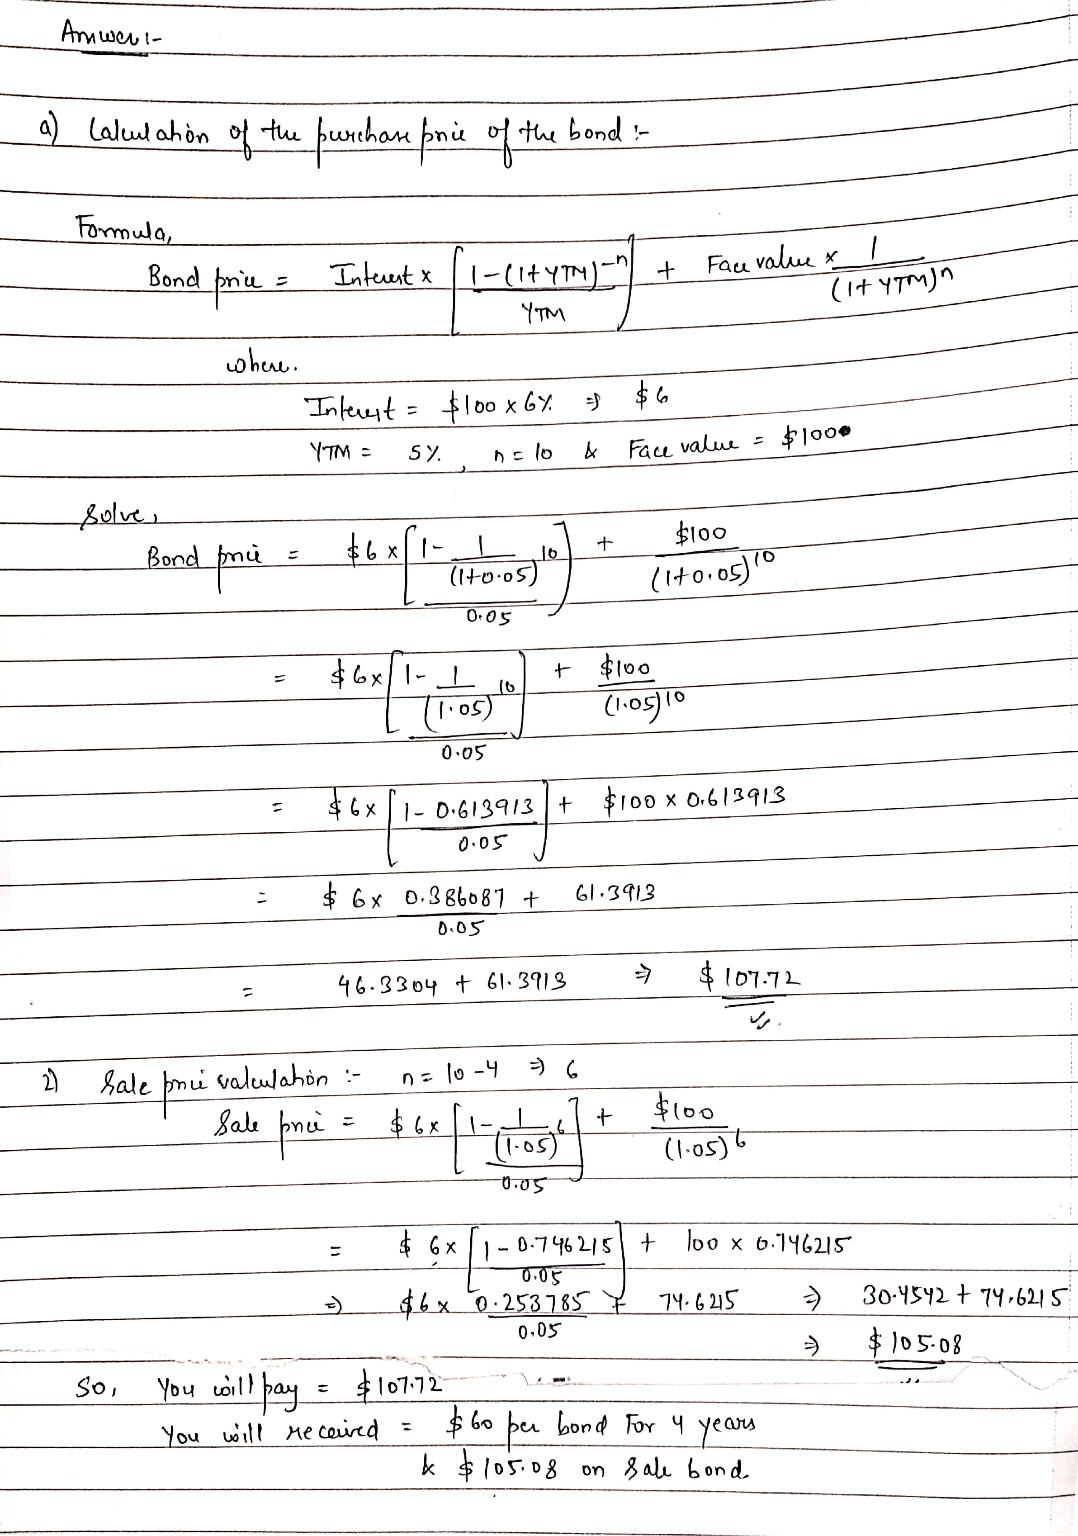 Answer :-
a) Calculation of the purchase price of the bond :-
Formula,
Bond price = Interest x [1-(1+YTM)^-n / YTM] + Face value x 1/(1+YTM)n
where.
Interest = $100 x 6% ⇒ $6
YTM = 5%, n = 10 & Face value = $100
Solve,
Bond price = $6 x [1- 1/(1+0.05)^10 / 0.05] + $100/(1+0.05)^10
= $6x [1- 1/(1.05)^10 / 0.05] + $100/(1.05)10
= $6x [1- 0.613913 / 0.05] + $100 x 0.613913
= $ 6x 0.386087/0.05 + 61.3913
= 46.3304 + 61.3913 ⇒ $107.72
2) Sale price calculation :- n = 10-4 ⇒ 6
Sale price = $6x [1- 1/(1.05)^6 / 0.05] + $100/(1.05)^6
= $ 6x [1- 0.746215 / 0.05] + 100 x 0.746215
⇒ $6x 0.253785/0.05 + 74.6215 ⇒ 30.4542 + 74.6215
⇒ $105.08
So, You will pay = $107.72
You will received = $60 per bond For 4 years
& $105.08 on Sale bond